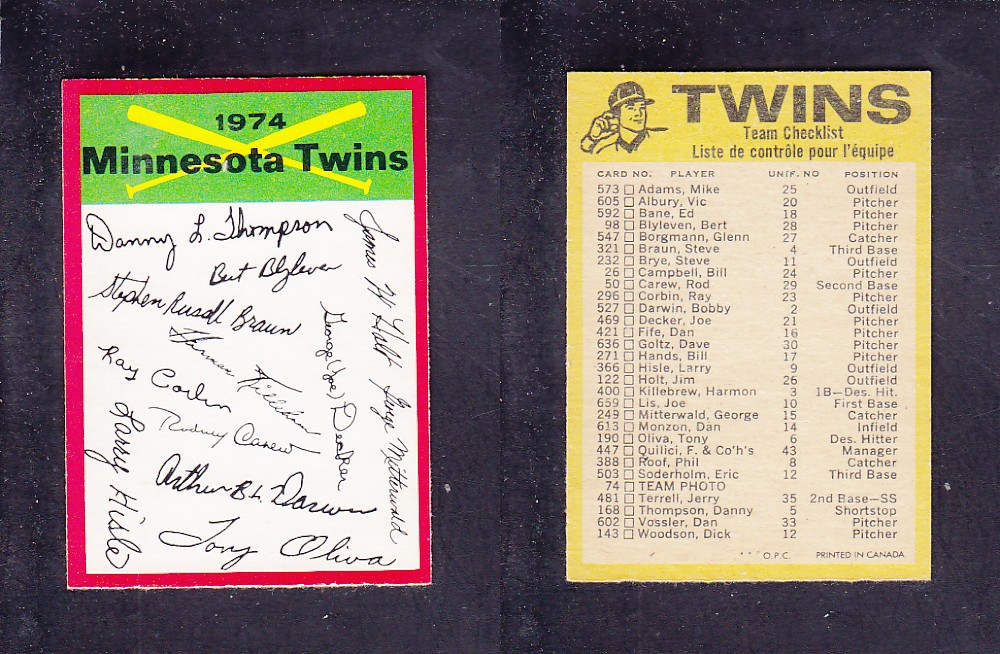 1974
Minnesota Twins
Danny L. Thompson
James W Holt
Bert Blyleven
Stephen Russell Braun
George (Joe) Decker
Harmon Killebrew
Ray Corbin
Rodney Carew
George Mitterwald
Larry Hisle
Arthur B L. Darwin
Tony Oliva
TWINS
Team Checklist
Liste de contrôle pour l'équipe
CARD NO. PLAYER UNIF. NO POSITION
573 Adams, Mike 25 Outfield
605 Albury, Vic 20 Pitcher
592 Bane, Ed 18 Pitcher
98 Blyleven, Bert 28 Pitcher
547 Borgmann, Glenn 27 Catcher
321 Braun, Steve 4 Third Base
232 Brye, Steve 11 Outfield
26 Campbell, Bill 24 Pitcher
50 Carew, Rod 29 Second Base
296 Corbin, Ray 23 Pitcher
527 Darwin, Bobby 2 Outfield
469 Decker, Joe 21 Pitcher
421 Fife, Dan 16 Pitcher
636 Goltz, Dave 30 Pitcher
271 Hands, Bill 17 Pitcher
366 Hisle, Larry 9 Outfield
122 Holt, Jim 26 Outfield
400 Killebrew, Harmon 3 1B—Des. Hit.
659 Lis, Joe 10 First Base
249 Mitterwald, George 15 Catcher
613 Monzon, Dan 14 Infield
190 Oliva, Tony 6 Des. Hitter
447 Quilici, F. & Co'h's 43 Manager
388 Roof, Phil 8 Catcher
503 Soderholm, Eric 12 Third Base
74 TEAM PHOTO
481 Terrell, Jerry 35 2nd Base—SS
168 Thompson, Danny 5 Shortstop
602 Vossler, Dan 33 Pitcher
143 Woodson, Dick 12 Pitcher
O.P.C. PRINTED IN CANADA